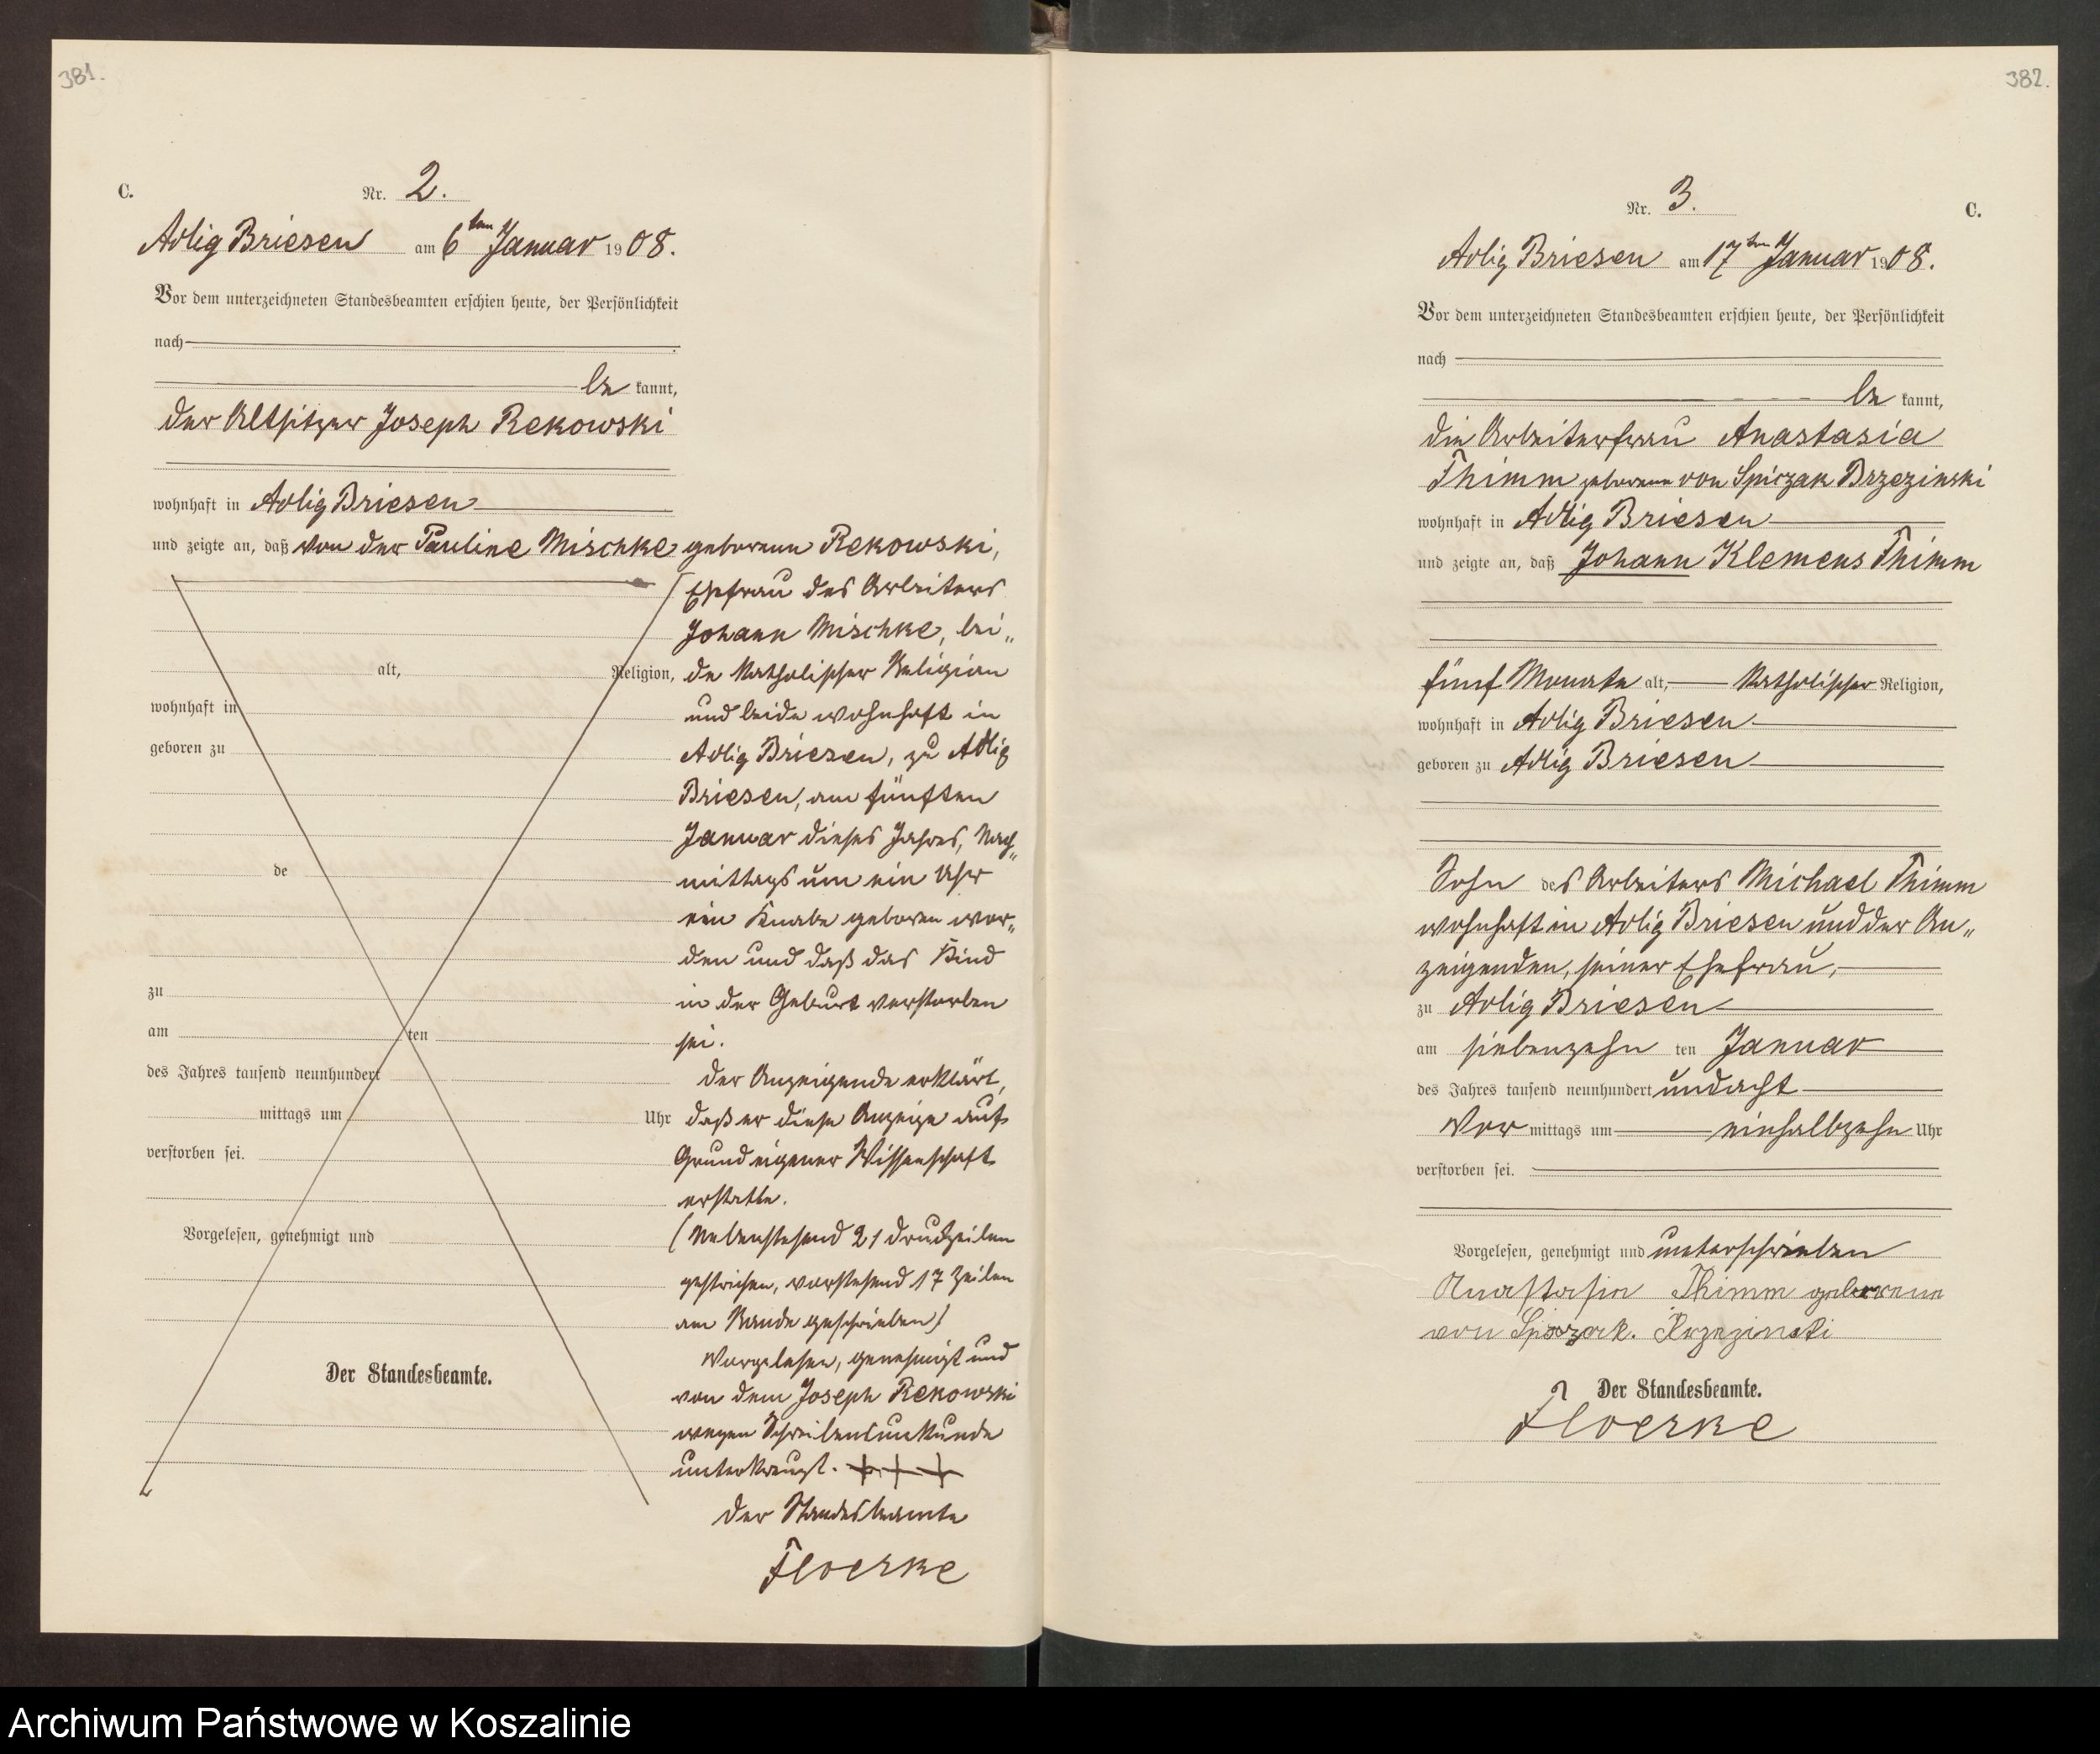 381.
C.
Nr. 2.
Adlig Briesen am 6ten Januar 1908.
Vor dem unterzeichneten Standesbeamten erschien heute, der Persönlichkeit
nach
be kannt,
der Altsitzer Joseph Rekowski
wohnhaft in Adlig Briesen
und zeigte an, daß von der Pauline Mischke geborenen Rekowski,
Ehefrau des Arbeiters
Johann Mischke, bei„
alt, Religion, de katholischer Religion
wohnhaft in und beide wohnhaft in
geboren zu Adlig Briesen, zu Adlig
Briesen, am fünften
Januar dieses Jahres, Nach„
de mittags um ein Uhr
ein Knabe geboren wor„
den und daß das Kind
zu in der Geburt verstorben
am ten sei.
des Jahres tausend neunhundert Der Anzeigende erklärt,
mittags um Uhr daß er diese Anzeige aus
verstorben sei. Grund eigener Wissenschaft
erstatte.
Vorgelesen, genehmigt und (Nebenstehend 21 Druckzeilen
gestrichen, vorstehend 17 Zeilen
am Rande geschrieben)
Vorgelesen, genehmigt und
Der Standesbeamte. von dem Joseph Rekowski
wegen Schreibensunkunde
unterkreuzt. +++
Der Standesbeamte
Floerke
382.
C.
Nr. 3.
Adlig Briesen am 17ten Januar 1908.
Vor dem unterzeichneten Standesbeamten erschien heute, der Persönlichkeit
nach
be kannt,
die Arbeiterfrau Anastasia
Thimm geborene von Spiczak Brzezinski
wohnhaft in Adlig Briesen
und zeigte an, daß Johann Klemens Thimm
fünf Monate alt, katholischer Religion,
wohnhaft in Adlig Briesen
geboren zu Adlig Briesen
Sohn des Arbeiters Michael Thimm
wohnhaft in Adlig Briesen und der An„
zeigenden, seiner Ehefrau,
zu Adlig Briesen
am siebenzehn ten Januar
des Jahres tausend neunhundert undacht
Vor mittags um einhalbzehn Uhr
verstorben sei.
Vorgelesen, genehmigt und unterschrieben
Anastasia Thimm geborene
von
Der Standesbeamte.
Floerke
Archiwum Państwowe w Koszalinie